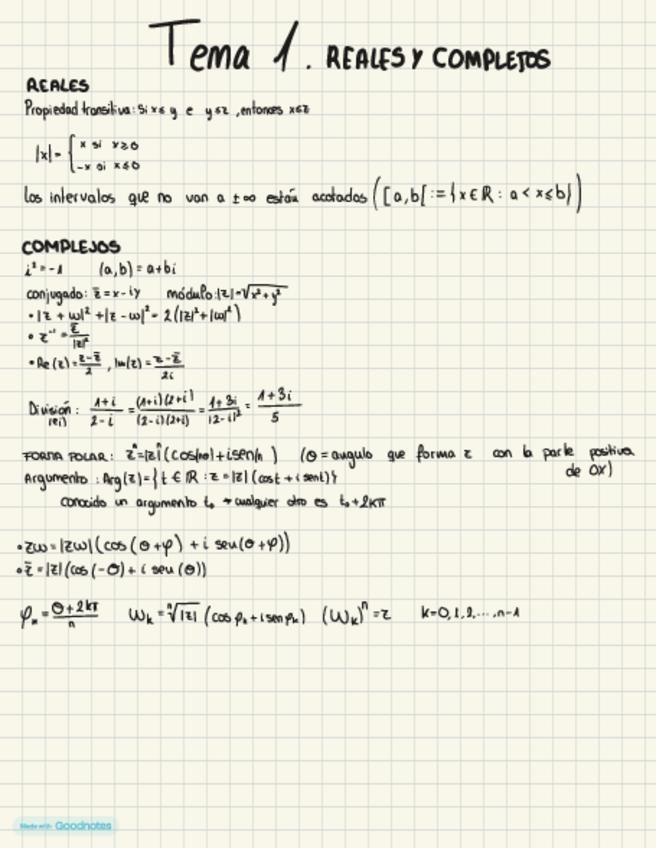 Tema 1. REALES Y COMPLEJOS
REALES
Propiedad transitiva: Si x≤y e y≤z, entonces x≤z
|x|= { x si x≥0
-x si x≤0
los intervalos que no van a ±∞ están acotados ([a,b[:={x∈ℝ: a<x≤b})
COMPLEJOS
i²=-1 (a,b)=a+bi
conjugado: z̄=x-iy módulo:|z|=√(x²+y²)
•|z+w|²+|z-w|²=2(|z|²+|w|²)
•z⁻¹=z̄/|z|²
•Re(z)=(z-z̄)/2, Im(z)=(z-z̄)/2i
División: (1+i)/(2-i)=(1+i)(2+i)/(2-i)(2+i)=(1+3i)/|2-i|²=(1+3i)/5
(ej)
FORMA POLAR: zⁿ=|z|ⁿ(cos(nθ)+isen(n ) (θ=angulo que forma z con la parte positiva
de OX)
Argumento: Arg(z)={t∈ℝ: z=|z|(cost+isent)}
conocido un argumento t₀ → cualquier otro es t₀+2kπ
•zw=|zw|(cos(θ+φ)+i sen(θ+φ))
•z̄=|z|(cos(-θ)+i sen(θ))
φₖ=(θ+2kπ)/n wₖ=ⁿ√|z| (cosφₖ+isenφₖ) (wₖ)ⁿ=z k=0,1,2,...,n-1
Made with Goodnotes